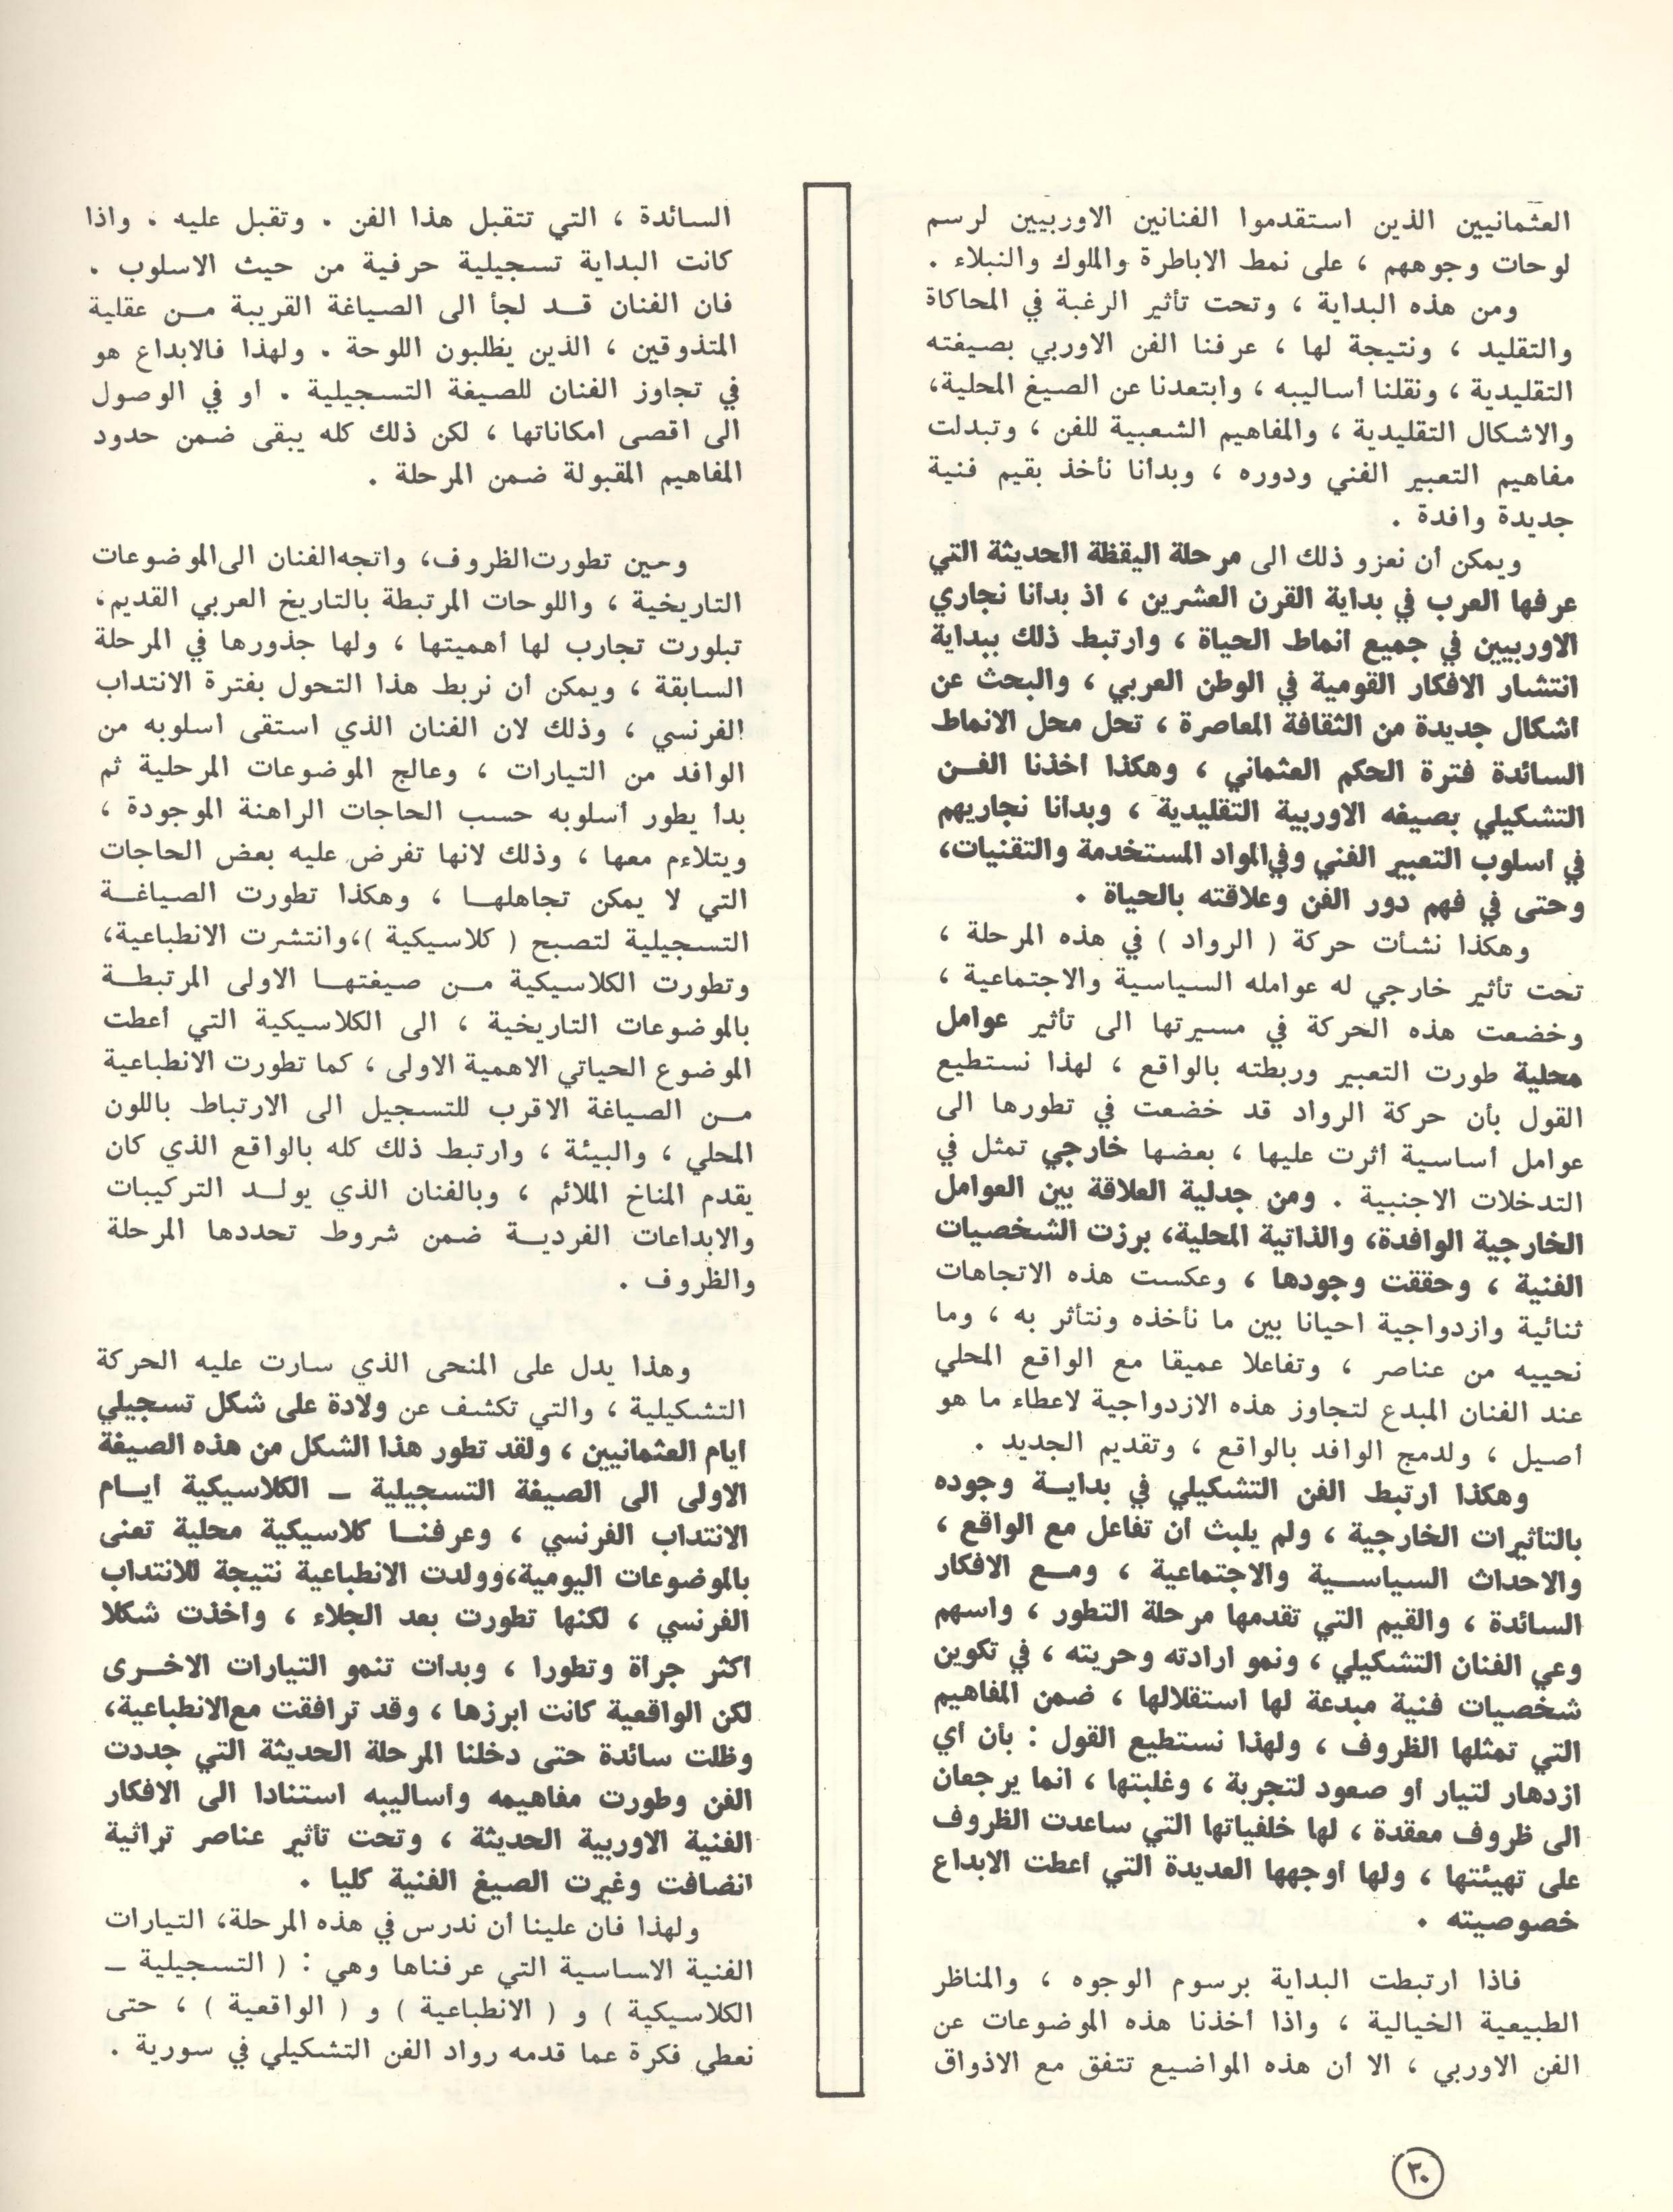 العثمانيين الذين استقدموا الفنانين الاوربيين لرسم
لوحات وجوههم ، على نمط الاباطرة والملوك والنبلاء .
ومن هذه البداية ، وتحت تأثير الرغبة في المحاكاة
والتقليد ، ونتيجة لها ، عرفنا الفن الاوربي بصيغته
التقليدية ، ونقلنا أساليبه ، وابتعدنا عن الصيغ المحلية،
والاشكال التقليدية ، والمفاهيم الشعبية للفن ، وتبدلت
مفاهيم التعبير الفني ودوره ، وبدأنا نأخذ بقيم فنية
جديدة وافدة .
ويمكن أن نعزو ذلك الى مرحلة اليقظة الحديثة التي
عرفها العرب في بداية القرن العشرين ، اذ بدأنا نجاري
الاوربيين في جميع أنماط الحياة ، وارتبط ذلك ببداية
انتشار الافكار القومية في الوطن العربي ، والبحث عن
اشكال جديدة من الثقافة المعاصرة ، تحل محل الانماط
السائدة فترة الحكم العثماني ، وهكذا أخذنا الفـن
التشكيلي بصيغه الاوربية التقليدية ، وبدأنا نجاريهم
في أسلوب التعبير الفني وفي المواد المستخدمة والتقنيات،
وحتى في فهم دور الفن وعلاقته بالحياة .
وهكذا نشأت حركة ( الرواد ) في هذه المرحلة ،
تحت تأثير خارجي له عوامله السياسية والاجتماعية ،
وخضعت هذه الحركة في مسيرتها الى تأثير عوامل
محلية طورت التعبير وربطته بالواقع ، لهذا نستطيع
القول بأن حركة الرواد قد خضعت في تطورها الى
عوامل أساسية أثرت عليها ، بعضها خارجي تمثل في
التدخلات الاجنبية . ومن جدلية العلاقة بين العوامل
الخارجية الوافدة، والذاتية المحلية، برزت الشخصيات
الفنية ، وحققت وجودها ، وعكست هذه الاتجاهات
ثنائية وازدواجية احيانا بين ما نأخذه ونتأثر به ، وما
نحييه من عناصر ، وتفاعلا عميقا مع الواقع المحلي
عند الفنان المبدع لتجاوز هذه الازدواجية لاعطاء ما هو
أصيل ، ولدمج الوافد بالواقع ، وتقديم الجديد .
وهكذا ارتبط الفن التشكيلي في بدايـة وجوده
بالتأثيرات الخارجية ، ولم يلبث أن تفاعل مع الواقع ،
والاحداث السياسـية والاجتماعية ، ومـع الافكار
السائدة ، والقيم التي تقدمها مرحلة التطور ، وأسهم
وعي الفنان التشكيلي ، ونمو ارادته وحريته ، في تكوين
شخصيات فنية مبدعة لها استقلالها ، ضمن المفاهيم
التي تمثلها الظروف ، ولهذا نستطيع القول : بأن أي
ازدهار لتيار أو صعود لتجربة ، وغلبتها ، انما يرجعان
الى ظروف معقدة ، لها خلفياتها التي ساعدت الظروف
على تهيئتها ، ولها أوجهها العديدة التي أعطت الابداع
خصوصيته .
فاذا ارتبطت البداية برسوم الوجوه ، والمناظر
الطبيعية الخيالية ، واذا أخذنا هذه الموضوعات عن
الفن الاوربي ، الا أن هذه المواضيع تتفق مع الاذواق
السائدة ، التي تتقبل هذا الفن . وتقبل عليه . واذا
كانت البداية تسجيلية حرفية من حيث الاسلوب .
فان الفنان قـد لجأ الى الصياغة القريبة مـن عقلية
المتذوقين ، الذين يطلبون اللوحة . ولهذا فالابداع هو
في تجاوز الفنان للصيغة التسجيلية . او في الوصول
الى اقصى امكاناتها ، لكن ذلك كله يبقى ضمن حدود
المفاهيم المقبولة ضمن المرحلة .
وحين تطورت الظروف، واتجه الفنان الى الموضوعات
التاريخية ، واللوحات المرتبطة بالتاريخ العربي القديم،
تبلورت تجارب لها أهميتها ، ولها جذورها في المرحلة
السابقة ، ويمكن أن نربط هذا التحول بفترة الانتداب
الفرنسي ، وذلك لان الفنان الذي استقى اسلوبه من
الوافد من التيارات ، وعالج الموضوعات المرحلية ثم
بدأ يطور أسلوبه حسب الحاجات الراهنة الموجودة ،
ويتلاءم معها ، وذلك لانها تفرض عليه بعض الحاجات
التي لا يمكن تجاهلهـا ، وهكذا تطورت الصياغـة
التسجيلية لتصبح ( كلاسيكية )،وانتشرت الانطباعية،
وتطورت الكلاسيكية مـن صيغتهـا الاولى المرتبطـة
بالموضوعات التاريخية ، الى الكلاسيكية التي أعطت
الموضوع الحياتي الاهمية الاولى ، كما تطورت الانطباعية
مـن الصياغة الاقرب للتسجيل الى الارتباط باللون
المحلي ، والبيئة ، وارتبط ذلك كله بالواقع الذي كان
يقدم المناخ الملائم ، وبالفنان الذي يولـد التركيبات
والابداعات الفرديـة ضمن شروط تحددها المرحلة
والظروف .
وهذا يدل على المنحى الذي سارت عليه الحركة
التشكيلية ، والتي تكشف عن ولادة على شكل تسجيلي
أيام العثمانيين ، ولقد تطور هذا الشكل من هذه الصيغة
الاولى الى الصيغة التسجيلية ـ الكلاسيكية أيـام
الانتداب الفرنسي ، وعرفنـا كلاسيكية محلية تعنى
بالموضوعات اليومية،وولدت الانطباعية نتيجة للانتداب
الفرنسي ، لكنها تطورت بعد الجلاء ، وأخذت شكلا
أكثر جرأة وتطورا ، وبدأت تنمو التيارات الاخـرى
لكن الواقعية كانت ابرزها ، وقد ترافقت مع الانطباعية،
وظلت سائدة حتى دخلنا المرحلة الحديثة التي جددت
الفن وطورت مفاهيمه وأساليبه استنادا الى الافكار
الفنية الاوربية الحديثة ، وتحت تأثير عناصر تراثية
انضافت وغيرت الصيغ الفنية كليا .
ولهذا فان علينا أن ندرس في هذه المرحلة، التيارات
الفنية الاساسية التي عرفناها وهي : ( التسجيلية ـ
الكلاسيكية ) و ( الانطباعية ) و ( الواقعية ) ، حتى
نعطي فكرة عما قدمه رواد الفن التشكيلي في سورية .
٣٠